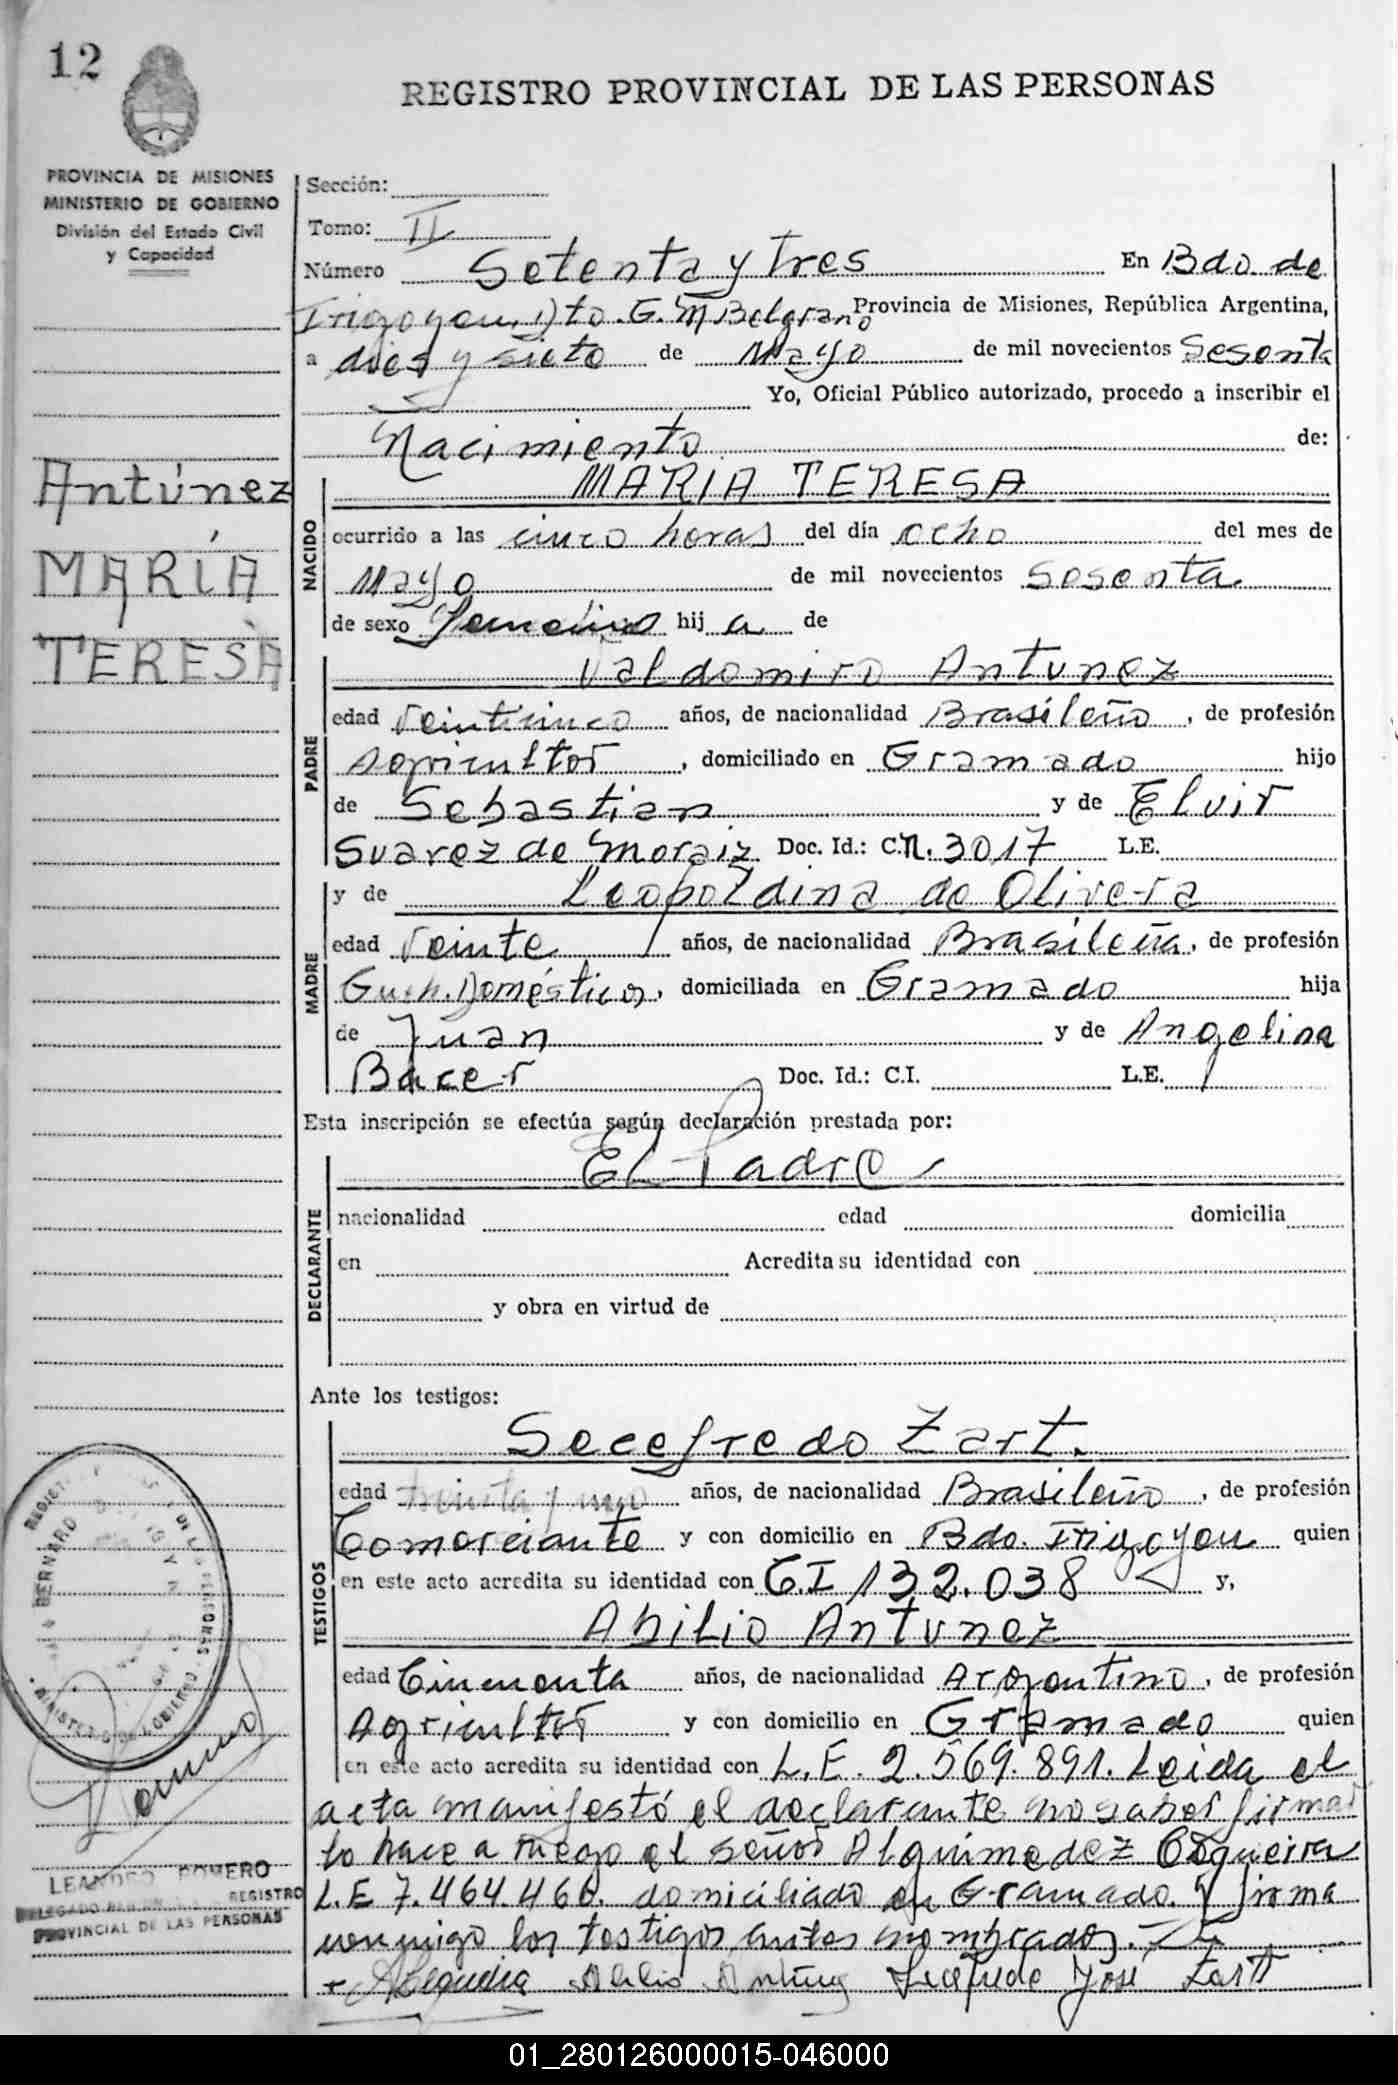 12
REGISTRO PROVINCIAL DE LAS PERSONAS
PROVINCIA DE MISIONES
MINISTERIO DE GOBIERNO
División del Estado Civil
y Capacidad
Sección:
Tomo: II
Número Setenta y tres En Bdo. de
Irigoyen, Dto. G. M Belgrano Provincia de Misiones, República Argentina,
a dies y siete de Mayo de mil novecientos Sesenta
Yo, Oficial Público autorizado, procedo a inscribir el
Nacimiento de:
Antúnez
MARÍA
TERESA
NACIDO
MARIA TERESA
ocurrido a las cinco horas del día ocho del mes de
Mayo de mil novecientos Sesenta
de sexo Femenino hij a de
PADRE
Valdomiro Antunez
edad Veinticinco años, de nacionalidad Brasileño, de profesión
Agricultor, domiciliado en Gramado hijo
de Sebastian y de Elvir
Suarez de Moraiz Doc. Id.: C.N. 3017 L.E.
MADRE
y de Leopoldina de Olivera
edad Veinte años, de nacionalidad Brasileña, de profesión
Queh. Domésticos, domiciliada en Gramado hija
de Juan y de Angelina
Bacer Doc. Id.: C.I. L.E.
Esta inscripción se efectúa según declaración prestada por:
DECLARANTE
El Padre
nacionalidad edad domicilia
en Acredita su identidad con
y obra en virtud de
Ante los testigos:
TESTIGOS
Secefredo Zart.
edad treinta y uno años, de nacionalidad Brasileño, de profesión
Comerciante y con domicilio en Bdo. Irigoyen quien
en este acto acredita su identidad con C.I 132.038 y,
Abilio Antunez
edad Cincuenta años, de nacionalidad Argentino, de profesión
Agricultor y con domicilio en Gramado quien
en este acto acredita su identidad con L.E. 2.569.891. Leida el
acta manifestó el declarante no saber firmar
lo hace a ruego el señor Alquimedez
L.E 7.464.466. domiciliado en Gramado. Y firma
conmigo los testigos antes nombrados.
Abilio Antunez Secefredo José Zart
LEANDRO ROMERO
REGISTRO
PROVINCIAL DE LAS PERSONAS
01_280126000015-046000